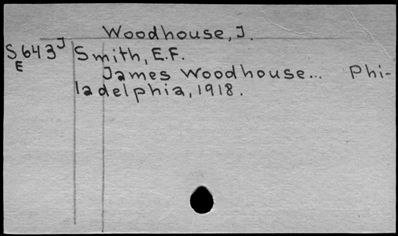 Woodhouse, J.
S643J Smith, E.F.
E James Woodhouse... Phi-
ladelphia, 1918.